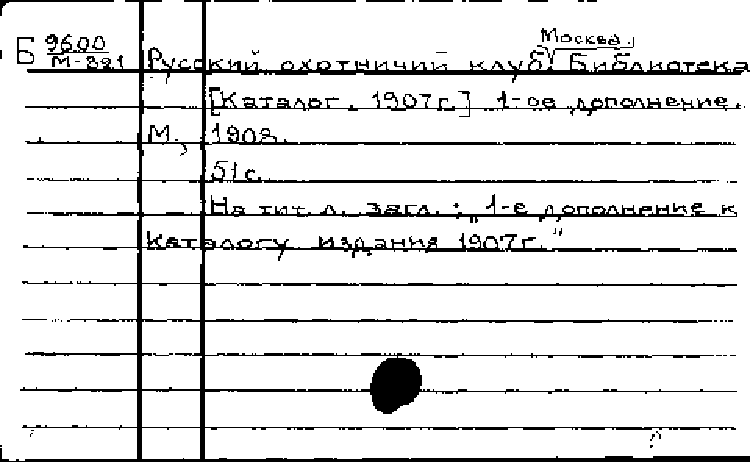 Б 9600
М-821
Москва.
Русский охотничий клуб. Библиотека
[Каталог. 1907г.] 1-ое дополнение.
М., 1908.
51 с.
На тит. л. загл.: „1-е дополнение к
каталогу издания 1907г."